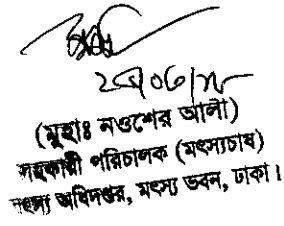 (মুহাঃ নওশের আলী)
সহকারী পরিচালক (মৎস্যচাষ)
মৎস্য অধিদপ্তর, মৎস্য ভবন, ঢাকা।